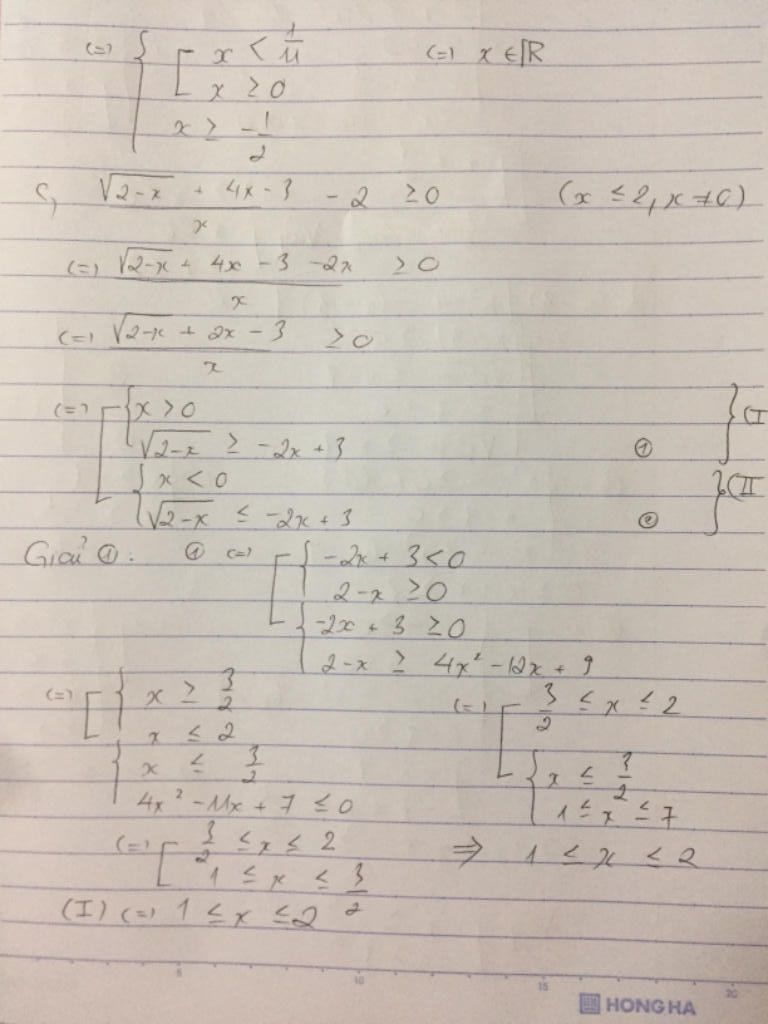 (=) { [ x < 1/4 (=) x ∈ ℝ
x ≥ 0
x ≥ -1/2
c, (√(2-x) + 4x - 3)/x - 2 ≥ 0 (x ≤ 2, x ≠ 0)
(=) (√(2-x) + 4x - 3 - 2x)/x ≥ 0
(=) (√(2-x) + 2x - 3)/x ≥ 0
(=) [ { x > 0 } (I
√(2-x) ≥ -2x + 3 ①
{ x < 0 } (II
√(2-x) ≤ -2x + 3 ②
Giải ①: ① (=) [ { -2x + 3 < 0
2 - x ≥ 0
{ -2x + 3 ≥ 0
2 - x ≥ 4x² - 12x + 9
(=) [ { x ≥ 3/2 (=) [ 3/2 ≤ x ≤ 2
x ≤ 2
{ x ≤ 3/2 { x ≤ 3/2
4x² - 11x + 7 ≤ 0 1 ≤ x ≤ 7
(=) [ 3/2 ≤ x ≤ 2 ⇒ 1 ≤ x ≤ 2
1 ≤ x ≤ 3/2
(I) (=) 1 ≤ x ≤ 2
5 10 15 20
HONG HA